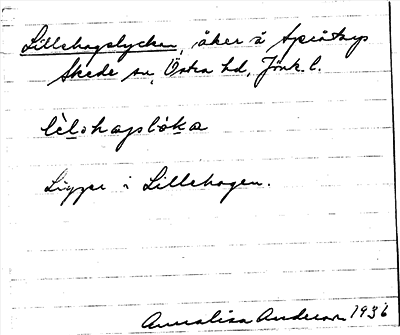 Lillehagslycken, åker å Spåtorp
Skede sn, Östra hd, Jönk. l.
lèlɘhagslöka
Ligger i Lillehagen.
Annalisa Anderson 1936